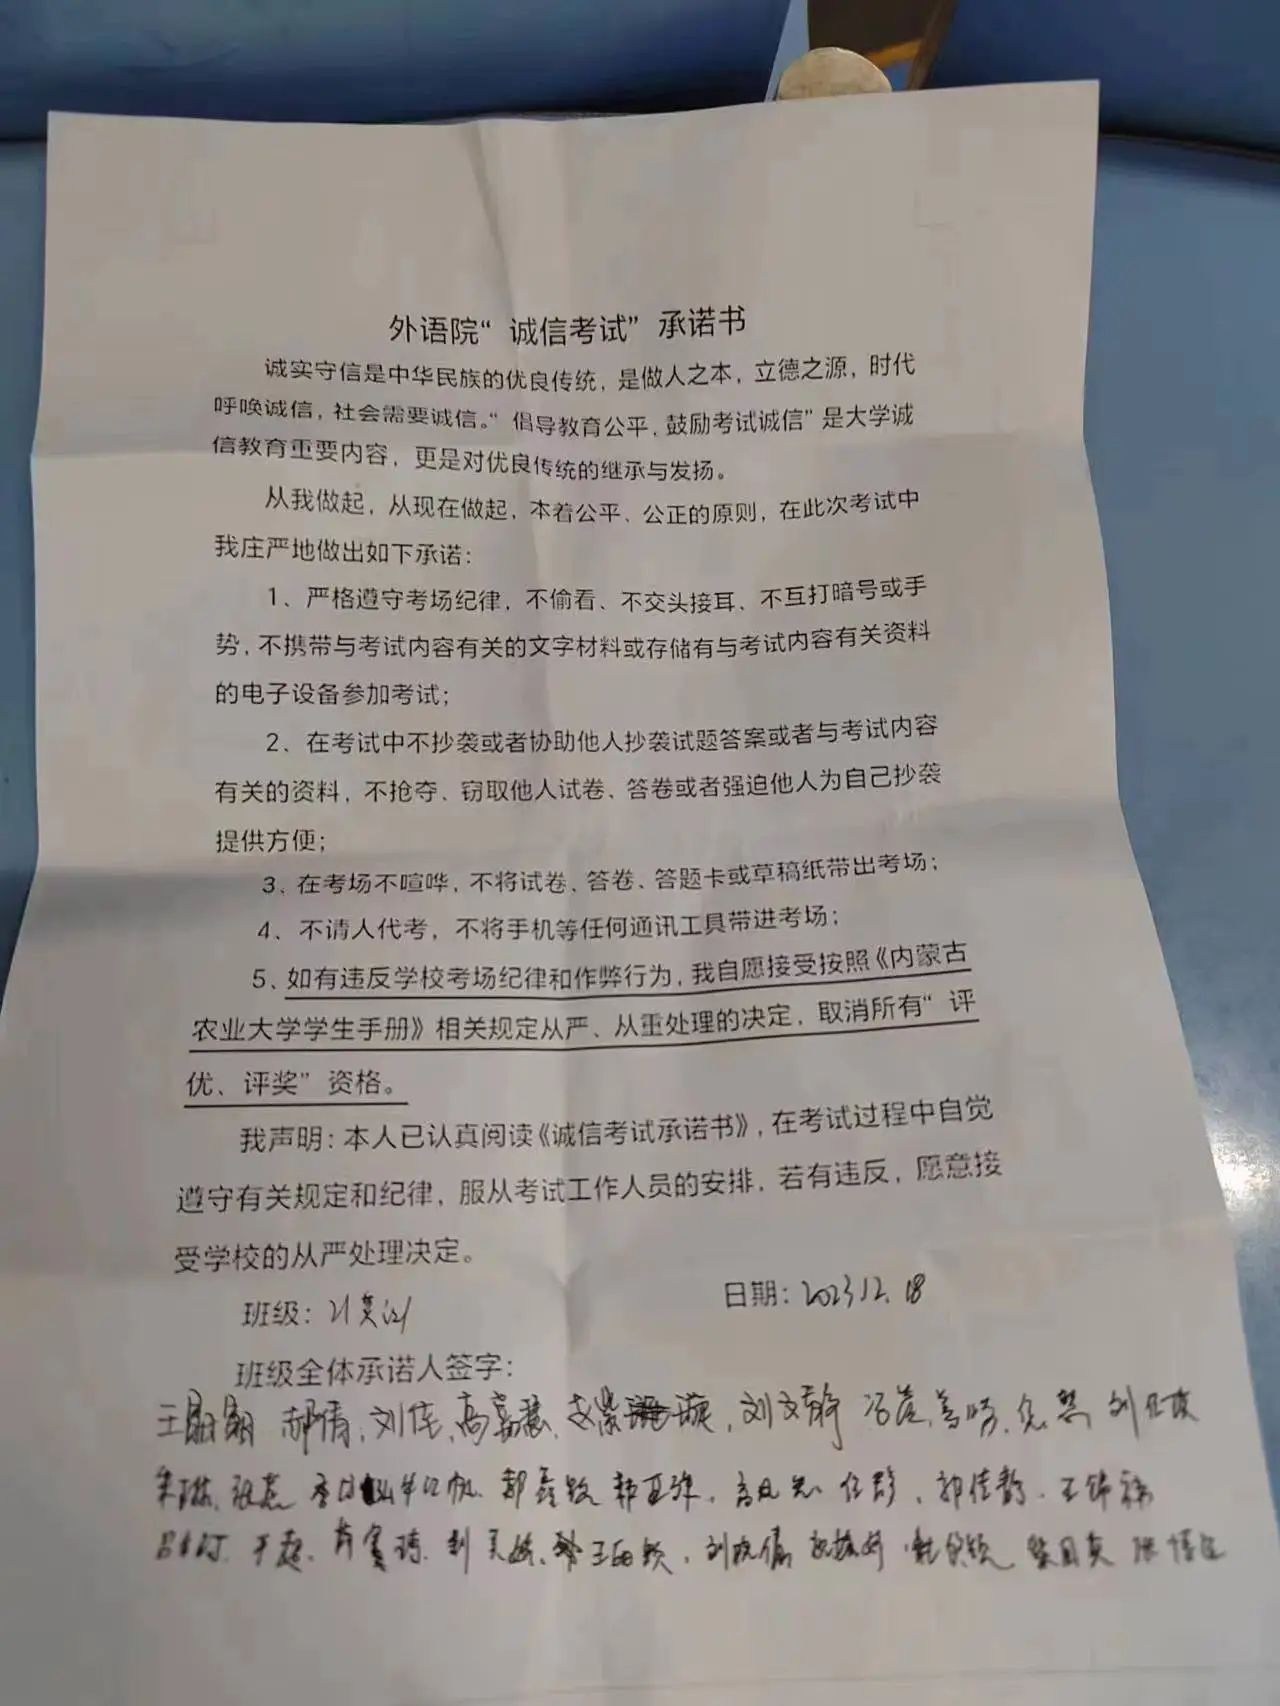 外语院“诚信考试”承诺书
诚实守信是中华民族的优良传统，是做人之本，立德之源，时代
呼唤诚信，社会需要诚信。“倡导教育公平，鼓励考试诚信”是大学诚
信教育重要内容，更是对优良传统的继承与发扬。
从我做起，从现在做起，本着公平、公正的原则，在此次考试中
我庄严地做出如下承诺：
1、严格遵守考场纪律，不偷看、不交头接耳、不互打暗号或手
势，不携带与考试内容有关的文字材料或存储有与考试内容有关资料
的电子设备参加考试；
2、在考试中不抄袭或者协助他人抄袭试题答案或者与考试内容
有关的资料，不抢夺、窃取他人试卷、答卷或者强迫他人为自己抄袭
提供方便；
3、在考场不喧哗，不将试卷、答卷、答题卡或草稿纸带出考场；
4、不请人代考，不将手机等任何通讯工具带进考场；
5、如有违反学校考场纪律和作弊行为，我自愿接受按照《内蒙古
农业大学学生手册》相关规定从严、从重处理的决定，取消所有“评
优、评奖”资格。
我声明：本人已认真阅读《诚信考试承诺书》，在考试过程中自觉
遵守有关规定和纪律，服从考试工作人员的安排，若有违反，愿意接
受学校的从严处理决定。
班级： 日期：2023.12.18
班级全体承诺人签字：
郝倩，刘佳，高嘉慧，刘文静
郭佳
于越